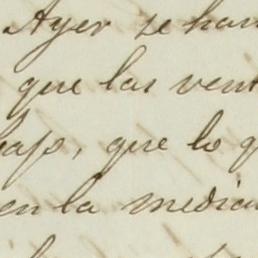 Ayer se han
que las vent
bajo, que lo q
en la medicin